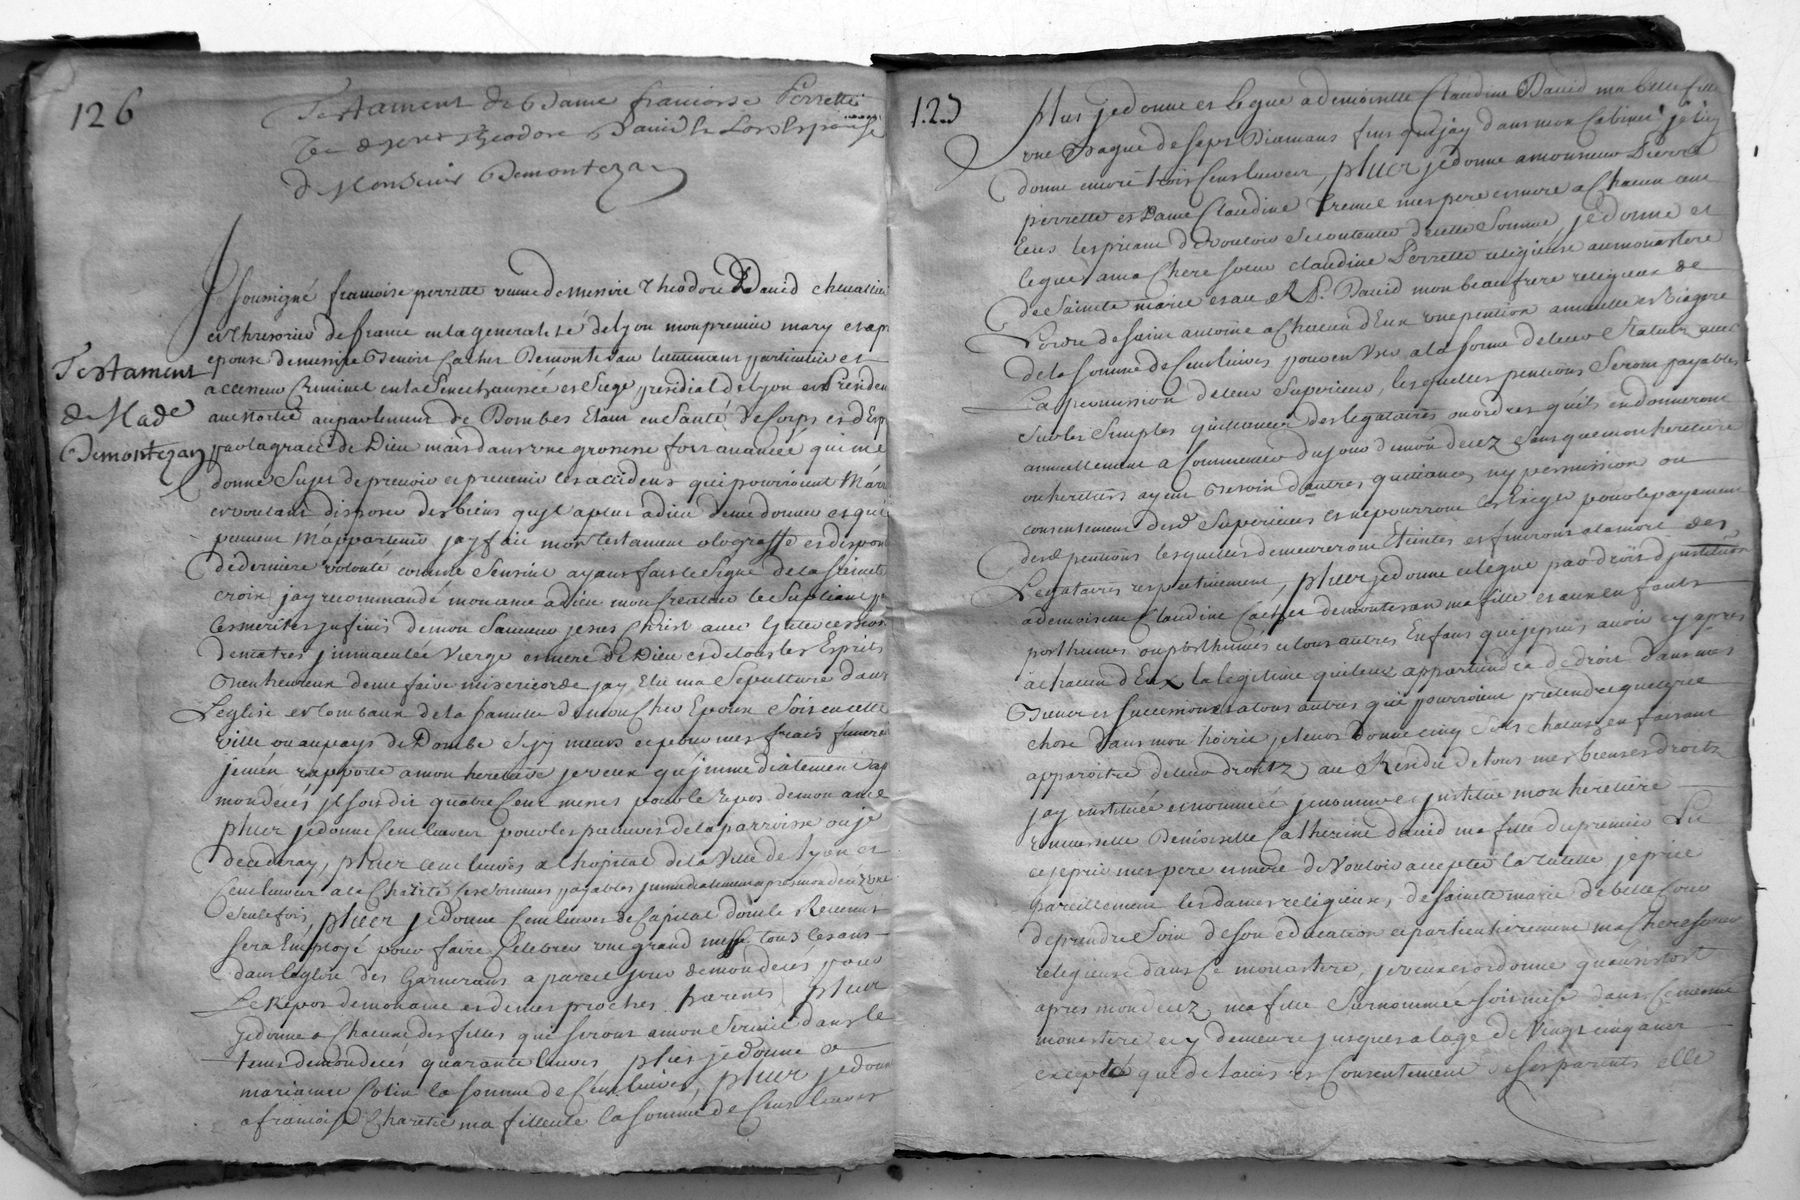 126
Testament de Dame francoise Perrette
Ve de Theodore David Lors Espouse
de Monsieur Demontezan
Testament
de Made
Demontezan
Je soussigné francoise perrette veuve de messire Theodore David chevallier
et thresorier de france en la generalité de lyon mon premier mary et ap
epouse de messire Benoist Cachet Demontesan lieutenant particulier et
assesseur Criminel en la Senechaussée et Siege presidial de lyon et Presiden
au mortié au parlement de Dombes Etant en Santé de Corps et d'Esp
par la grace de Dieu mais dans une grossesse fort avancée qui me
donne Sujet de prevoir et prevenir les accidens qui pourroient M'arr
et voulant disposer des biens qu'il a plu a dieu de me donner et qui
peuvent M'appartenir j'ay fait mon testament olograffe et dispon
de derniere volonté comme s'ensuit ayant fait le Signe de la Sainte
croix j'ay recommandé mon ame a dieu mon Createur le Supliant p
les merites infinis de mon Sauveur jesus Christ avec l'intercession
de la tres jmmaculée Vierge et mere de Dieu et de tous les Esprits
bien heureux de me faire misericorde jay Elu ma Sepulture dans
L'eglise et tombeaux de la famille de mon Cher Epoux Soit en cette
ville ou au pays de Dombe Si j'y meurs et pour mes frais funere
je m'en rapporte a mon heretiere je veux qu'jmmediatement ap
mon decés jl soit dit quatre Cent messes pour le Repos de mon ame
plus je donne Cent livres pour les pauvres de la parroisse ou je
decederay, plus cent livres a l'hopital de la Ville de lyon et
Cent livres a la Charité les sommes payables jmmediatement apres mon decez une
seule fois, plus je donne Cent livres de Capital dont le Revenus
sera Employé pour faire Celebrer une grand messe tous les ans
dans l'eglise des Garnerans a pareil jour de mon decés pour
Le Repos de mon ame et de mes proches parents plus
je donne a Chacune des filles qui seront a mon Service dans le
tems de mon decés quarante livres plus je donne a
mariane Colin la somme de Cent livres, plus je donne
a francoise Charite ma filleule la somme de Cent livres
127
Plus je donne et legue a demoiselle Claudine David ma belle fille
une Bague de sept Diamans fins que j'ay dans mon Cabinet je luy
donne encore trois Cens livres, plus je donne a monsieur Pierre
perrette et Dame Claudine Trenel mes pere et mere a Chacun
Ecus les priant de vouloir se contenter de cette Somme, je donne et
legue a ma Chere soeur claudine Perrette religieuse au monastere
de Sainte marie et au R P. David mon beau frere religieux de
l'ordre de saint antoine a Chacun d'Eux une pention annuelle et Viagere
de la somme de Cent livres pour en user a la forme de leur Statuts avec
La permission de leur Superieur, lesquelles pentions Seront payables
sur les Simples quittances des legataires ou ordres qu'ils en donneront
annuellement a Commencer du jour de mon decez Sans que mon heretiere
ou heritiers ayent Besoin d'autres quittances ny permission ou
consentement desd Superieurs et ne pourront les Exiger pour le payement
desd pentions lesquelles demeureront Eteintes et finiront a la mort des
Legataires respectivement, plus je donne et legue par droit d'justitution
a demoiselle Claudine Cachet demontesan ma fille et aux enfants
posthumes ou posthumes et tous autres Enfans que je puis avoir cy apres
a chacun d'Eux la legitime qui leur appartiendra de droit dans mes
Biens et Successions et a tous autres qui pourroient pretendre quelque
chose dans mon hoirie je leurs donne cinq Sols chacun en faisant
apparoitre de leurs droits, au Residu de tous mes biens et droits
jay instituée et nommée je nomme et jnstitue mon heretiere
universelle Demoiselle Catherine david ma fille du premier Lit
et je prie mes pere et mere de Vouloir accepter la tutelle, je prie
pareillement les dames religieuses de Sainte marie de belle Cour
de prendre Soin de son education et particulierement ma Chere soeur
religieuse dans Ce monastere, je veux et ordonne qu'aussitost
apres mon decez ma fille Surnommée soit mise dans Ce meme
monastere et y demeure jusques a l'age de Vingt cinq ans
excepté que de lavis et Consentement de ses parents elle